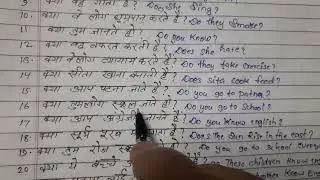 9. क्या वह गाती है? Does she sing?
10. क्या वे लोग धूम्रपान करते हैं? Do they smoke?
11. क्या तुम जानते हो? Do you know?
12. क्या वह नफरत करती है? Does she hate?
13. क्या वे लोग व्यायाम करते हैं? Do they take exercise?
14. क्या सीता खाना बनाती है? Does sita cook food?
15. क्या आप पटना जाते हैं? Do you go to patna?
16. क्या तुमलोग स्कूल जाते हो? Do you go to school?
17. क्या आप अंग्रेजी जानते हैं? Do you know english?
18. क्या सूर्य पूरब में है? Does the Sun in the east?
19. क्या तुम रोज स्कूल जाते हो? Do you go to school every
20. क्या ये बच्चे these children know